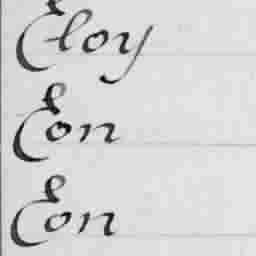 Eloy
Eon
Eon